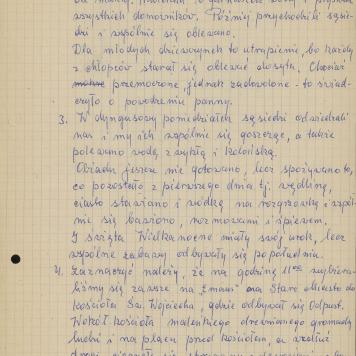 wszystkich domowników. Później przychodzili sąsie-
dzi i wspólnie się oblewano.
Dla młodych dziewczynek to utrapienie, bo każdy
z chłopców starał się oblewać dosyta. Chociaż
przemoczone, jednak zadowolone - to świad-
czyło o powodzeniu panny.
3. W dyngusowy poniedziałek sąsiedzi odwiedzali
nas i my ich wspólnie się goszcząc, a także
polewano wodą zwykłą i kolońską.
Obiadu jeszcze nie gotowano, lecz spożywano to,
co pozostało z pierwszego dnia tj. wędlinę,
ciasto stawiano i wódkę na rozgrzewkę i wspól-
nie się bawiono, rozmowami i śpiewem.
I święta Wielkanocne miały swój urok, lecz
wspólne zabawy odbywały się po południu.
4. Zaznaczyć należy, że na godzinę 11 wybiera-
liśmy się zawsze na "Emaus" na Stare Miasto do
Kościoła Św. Wojciecha, gdzie odbywał się Odpust.
Wokół Kościoła maleńkiego drewnianego gromady
ludzi i na placu przed Kościołem, a wzdłuż